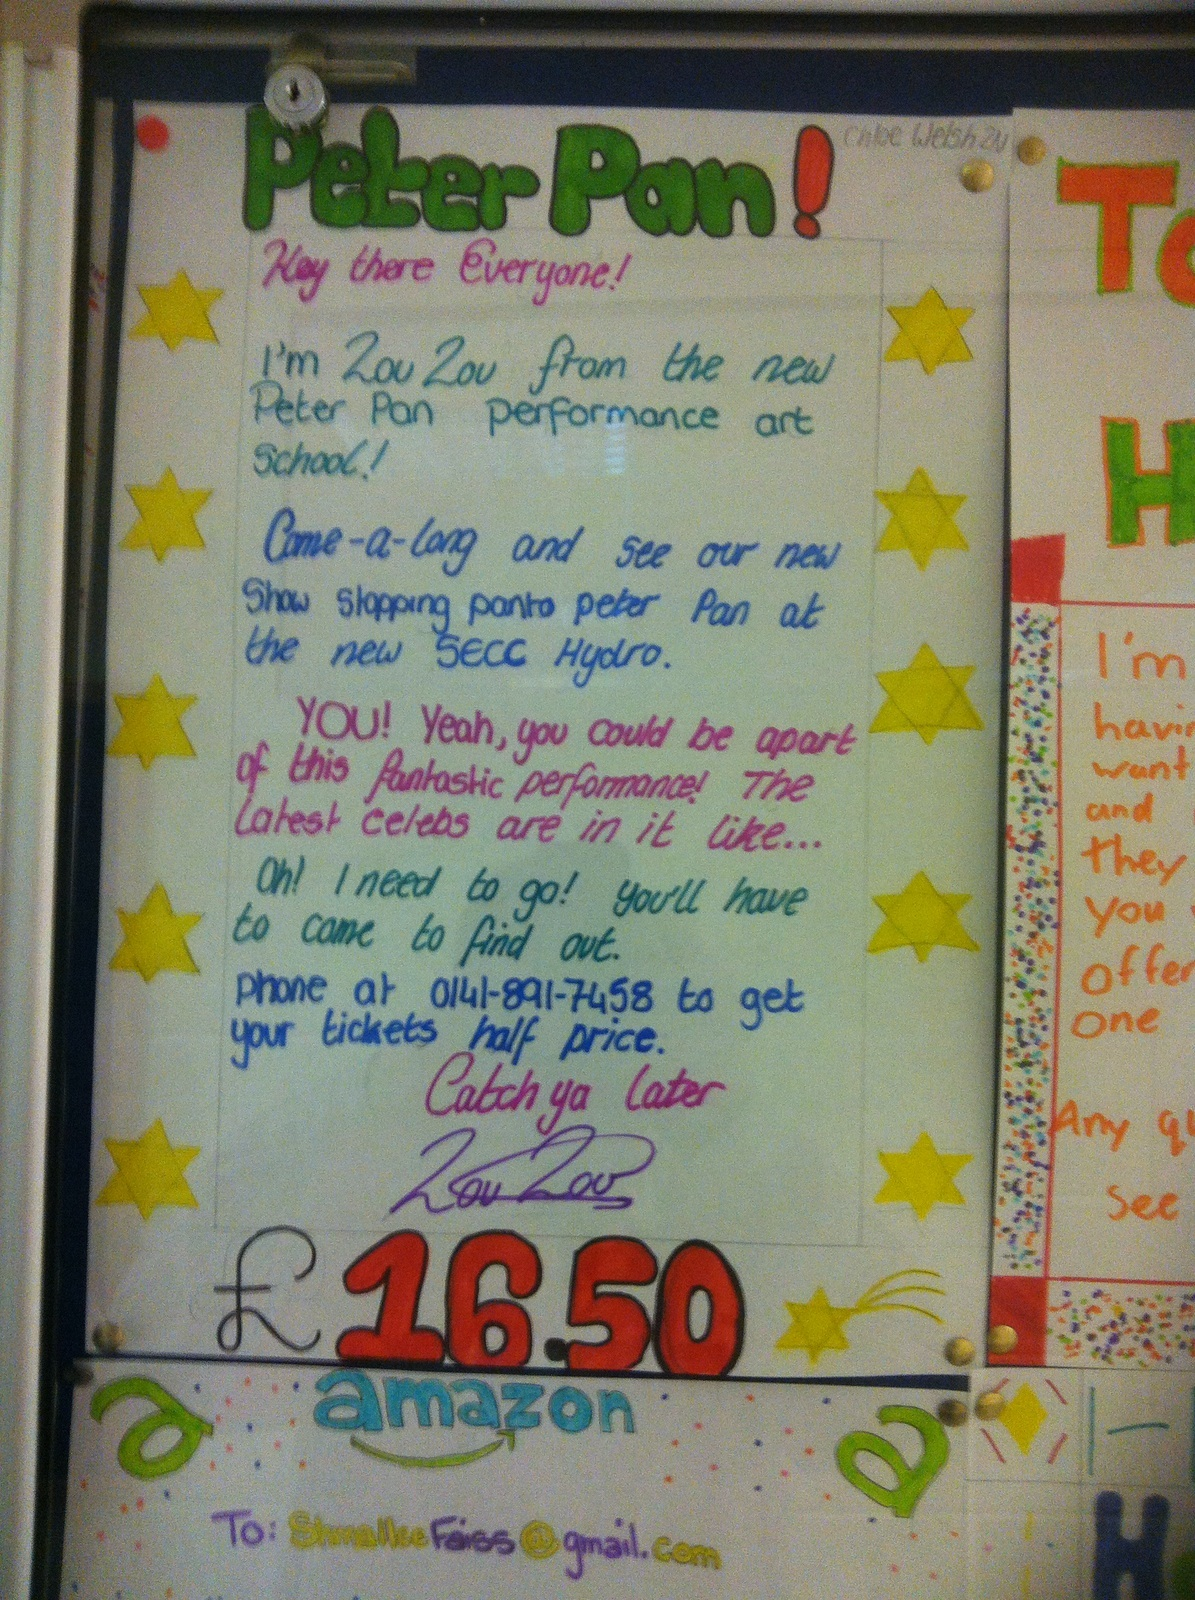 Peter Pan!
Chloe Welsh 2N
Hey there Everyone!
I'm Zou Zou from the new
Peter Pan performance art
School!
Come-a-long and see our new
Show stopping panto peter Pan at
the new SECC Hydro.
YOU! Yeah, you could be apart
of this fantastic performance! The
Latest celebs are in it like...
Oh! I need to go! You'll have
to come to find out.
phone at 0141-891-7458 to get
your tickets half price.
Catch ya later
Zou Zou
£16.50
a amazon a
To: ShmalleeFaiss@gmail.com
To
H
I'm
havin
want
and
they
you
offer
one
Any qu
See
H